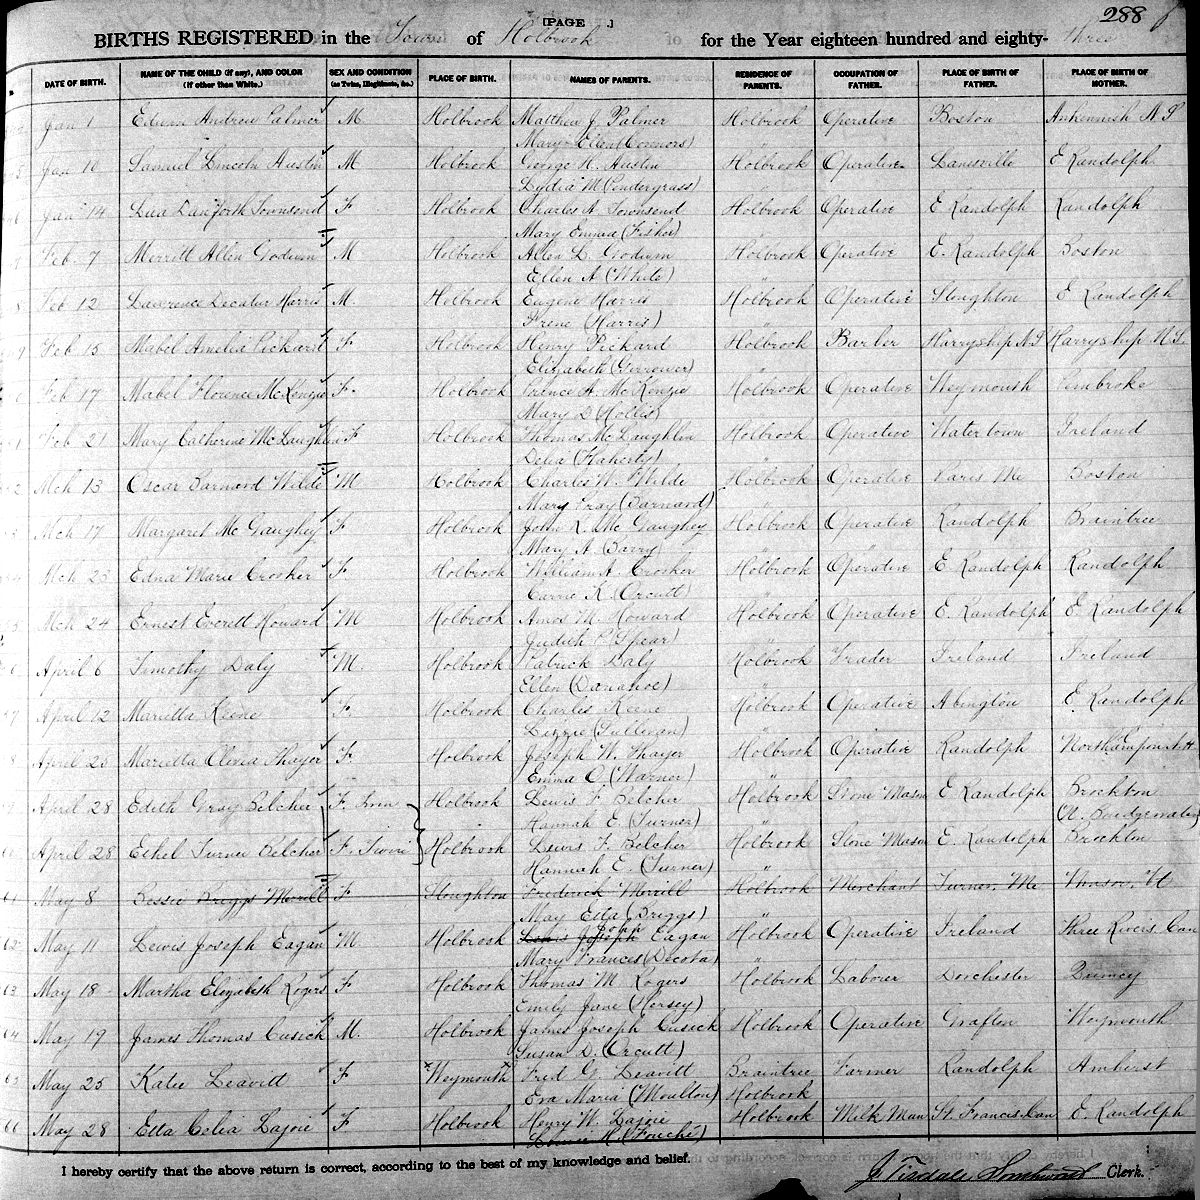 [PAGE .] 288
BIRTHS REGISTERED in the Town of Holbrook for the Year eighteen hundred and eighty-three
DATE OF BIRTH. NAME OF THE CHILD (if any), AND COLOR (if other than White.) SEX AND CONDITION (as Twins, Illegitimate, &c.) PLACE OF BIRTH. NAMES OF PARENTS. RESIDENCE OF PARENTS. OCCUPATION OF FATHER. PLACE OF BIRTH OF FATHER. PLACE OF BIRTH OF MOTHER.
Jan 1 Edwin Andrew Palmer M Holbrook Matthew J Palmer Holbrook Operative Boston N S
Mary Ellen (Connors)
Jan 10 Samuel Lincoln Austin M Holbrook George H. Austin Holbrook Operative Lanesville E Randolph
Lydia M (Pendergrass)
Jan 14 Danforth Townsend F Holbrook Charles A Townsend Holbrook Operative E Randolph Randolph
Mary Emma (Fisher)
Feb. 7 Merritt Allen Godwin M Holbrook Allen L. Godwin Holbrook Operative E. Randolph Boston
Ellen A (White)
Feb 12 Lawrence Decatur Harris M. Holbrook Eugene Harris Holbrook Operative Stoughton E Randolph
Irene (Harris)
Feb 15 Mabel Amelia Pickard F Holbrook Henry Pickard Holbrook Barber Harryship N.S Harryship N.S.
Elizabeth
Feb 17 Mabel Florence McKenzie F. Holbrook A. McKenzie Holbrook Operative Weymouth Pembroke
Mary D (Hollis)
Feb 21 Mary Catherine McLaughlin F Holbrook Thomas McLaughlin Holbrook Operative Watertown Ireland
Delia (Flaherty)
Mch 13 Oscar Barnard Wilde M Holbrook Charles W. Wilde Holbrook Operative Paris Me Boston
Mary Gray (Barnard)
Mch 17 Margaret McGaughey F Holbrook John R. McGaughey Holbrook Operative Randolph Braintree
Mary A (Barry)
Mch 23 Edna Marie Crosher F. Holbrook William A. Crosher Holbrook Operative E Randolph Randolph
Carrie K. (Orcutt)
Mch 24 Ernest Everett Howard M Holbrook Amos M. Howard Holbrook Operative E. Randolph E. Randolph
Judith P. (Spear)
April 6 Timothy Daly M. Holbrook Patrick Daly Holbrook Trader Ireland Ireland
Ellen (Danahoe)
April 12 Marietta Keene F. Holbrook Charles Keene Holbrook Operative Abington E. Randolph
Lizzie (Sullivan)
April 25 Marietta Olivia Thayer F. Holbrook Joseph W. Thayer Holbrook Operative Randolph Northampton N.H
Emma O. (Warner)
April 28 Edith Gray Belcher F. Twin Holbrook Lewis F Belcher Holbrook Stone Mason E Randolph Brockton
Hannah E. (Turner) (N. Bridgewater)
April 28 Ethel Turner Belcher F. Twin Holbrook Lewis F. Belcher Holbrook Stone Mason E. Randolph Brockton
Hannah E. (Turner)
61 May 8 Bessie Briggs Merrill F Stoughton Frederick Merrill Holbrook Merchant Turner, Me Vt
May Etta (Briggs)
John
62 May 11 Lewis Joseph Eagan M Holbrook Lewis Joseph Eagan Holbrook Operative Ireland Three Rivers, Can
Mary Frances (Decota)
63 May 18 Martha Elizabeth Rogers F Holbrook Thomas M Rogers Holbrook Laborer Dorchester Quincy
Emily Jane (Hersey)
64 May 19 James Thomas Cusick M. Holbrook James Joseph Cusick Holbrook Operative Grafton Weymouth
Susan D. (Orcutt)
65 May 25 Katie Leavitt F xWeymouthx Fred G Leavitt Braintree Farmer Randolph Amherst
Eva Maria (Moulton) Holbrook
66 May 28 Etta Celia Lajoie F Holbrook Henry W. Lajoie Holbrook Milk Man St. Francis, Can E. Randolph
(Fouche)
I hereby certify that the above return is correct, according to the best of my knowledge and belief.
J Tisdale Southworth Clerk.